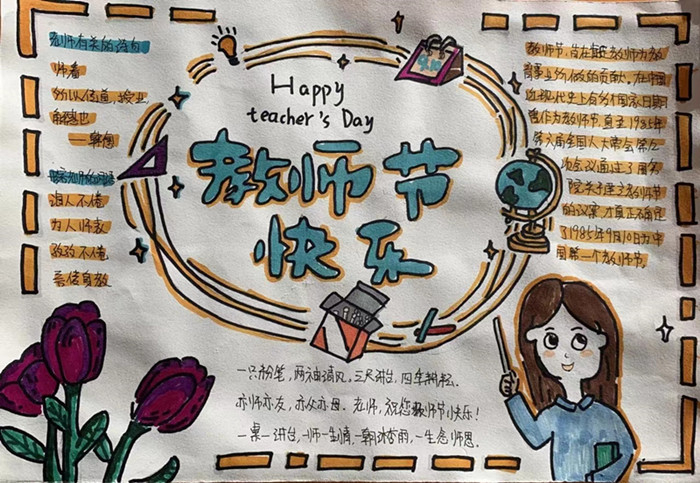 教师有关的语句
师者
所以传道,授业,
解惑也
——韩愈
诲人不倦
为人师表
孜孜不倦
Happy
teacher's Day
教师节
快乐
9.10
教师节,旨在肯定教师为教
育事业所做的贡献。在中国
近现代史上有多个国家日期
曾作为教师节 直至1985年
第六届全国人大常会第九
次会议通过了国务
院关于建立教师节
的议案,才真正确定
了1985年9月10日为中
国第一个教师节
一只粉笔,两袖清风,三尺讲台,四年耕耘。
亦师亦友,亦父亦母。老师,祝您教师节快乐!
一桌一讲台,一师一生情,一朝沐杏雨,一生念师恩。